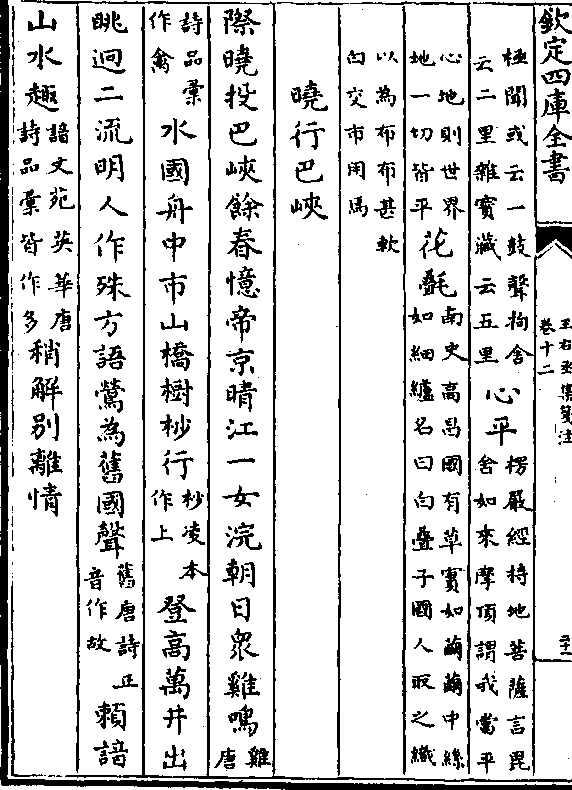 欽定四庫全書
王右丞集箋注
卷十二
二十一
極聞或云一鼓聲拘舍
云二里雜寳藏云五里
心平
楞嚴經持地菩薩言毘
舍如來摩頂謂我當平
心地則世界
地一切皆平
花氎
南史高昌國有草實如繭繭中絲
如細纑名曰白疊子國人取之織
以為布布甚軟
白交市用焉
曉行巴峽
際曉投巴峽餘春憶帝京晴江一女浣朝日衆雞鳴
雞
唐
詩品彚
作禽
水國舟中市山橋樹杪行
杪凌本
作上
登高萬井出
眺迥二流明人作殊方語鶯為舊國聲
舊唐詩正
音作故
賴諳
山水趣
諳文苑英華唐
詩品彚皆作多
稍解別離情